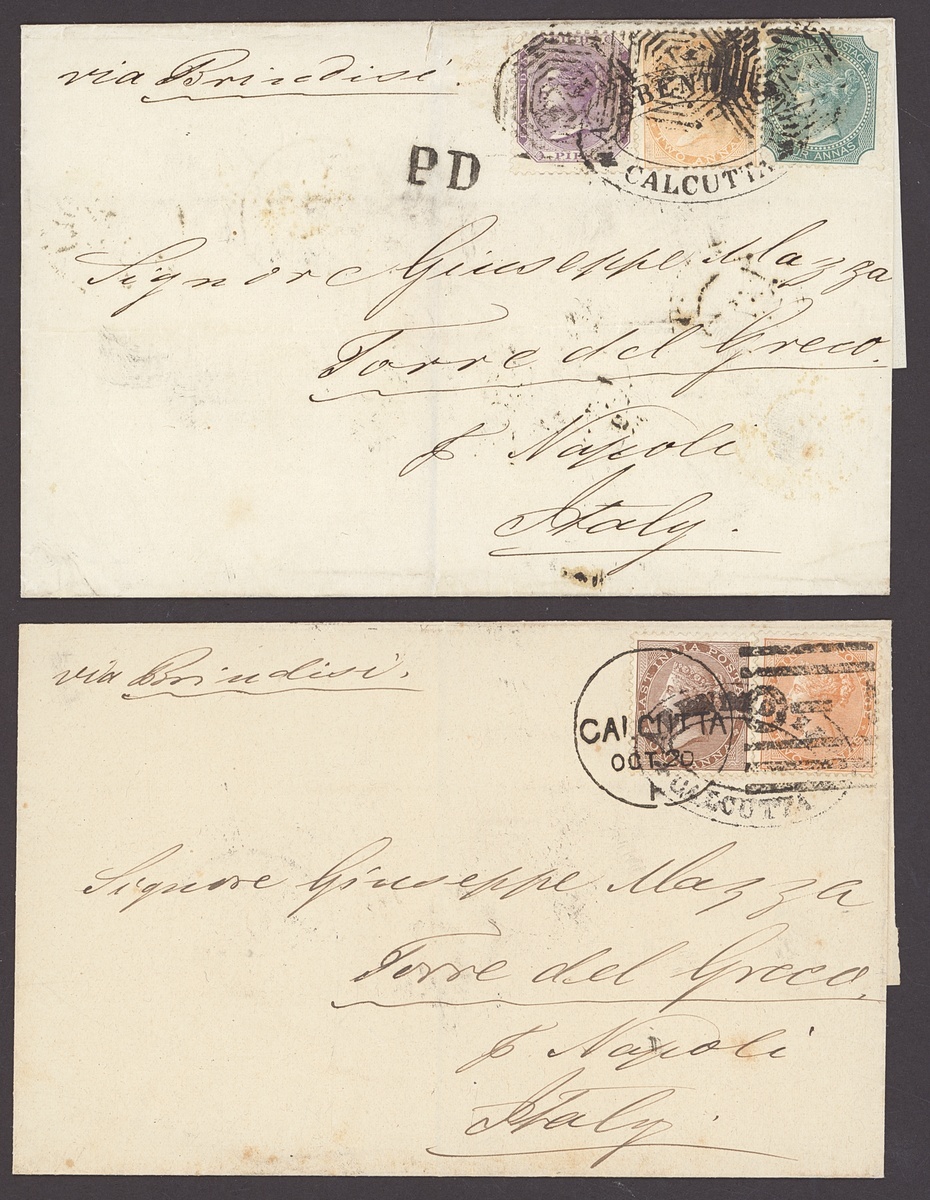 via Brindisi.
PIES
TWO ANNAS
POSTAGE
FOUR ANNAS
BENT
CALCUTTA
PD
Signore Giuseppe Mazza
Torre del Greco.
p. Napoli
Italy.
via Brindisi.
EAST INDIA POSTAGE
CALCUTTA
OCT. 20
CALCUTTA
Signore Giuseppe Mazza
Torre del Greco.
p. Napoli
Italy.